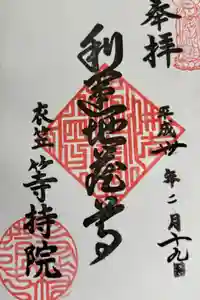 奉拝
平成廿年二月十九日
利運地蔵尊
衣笠等持院